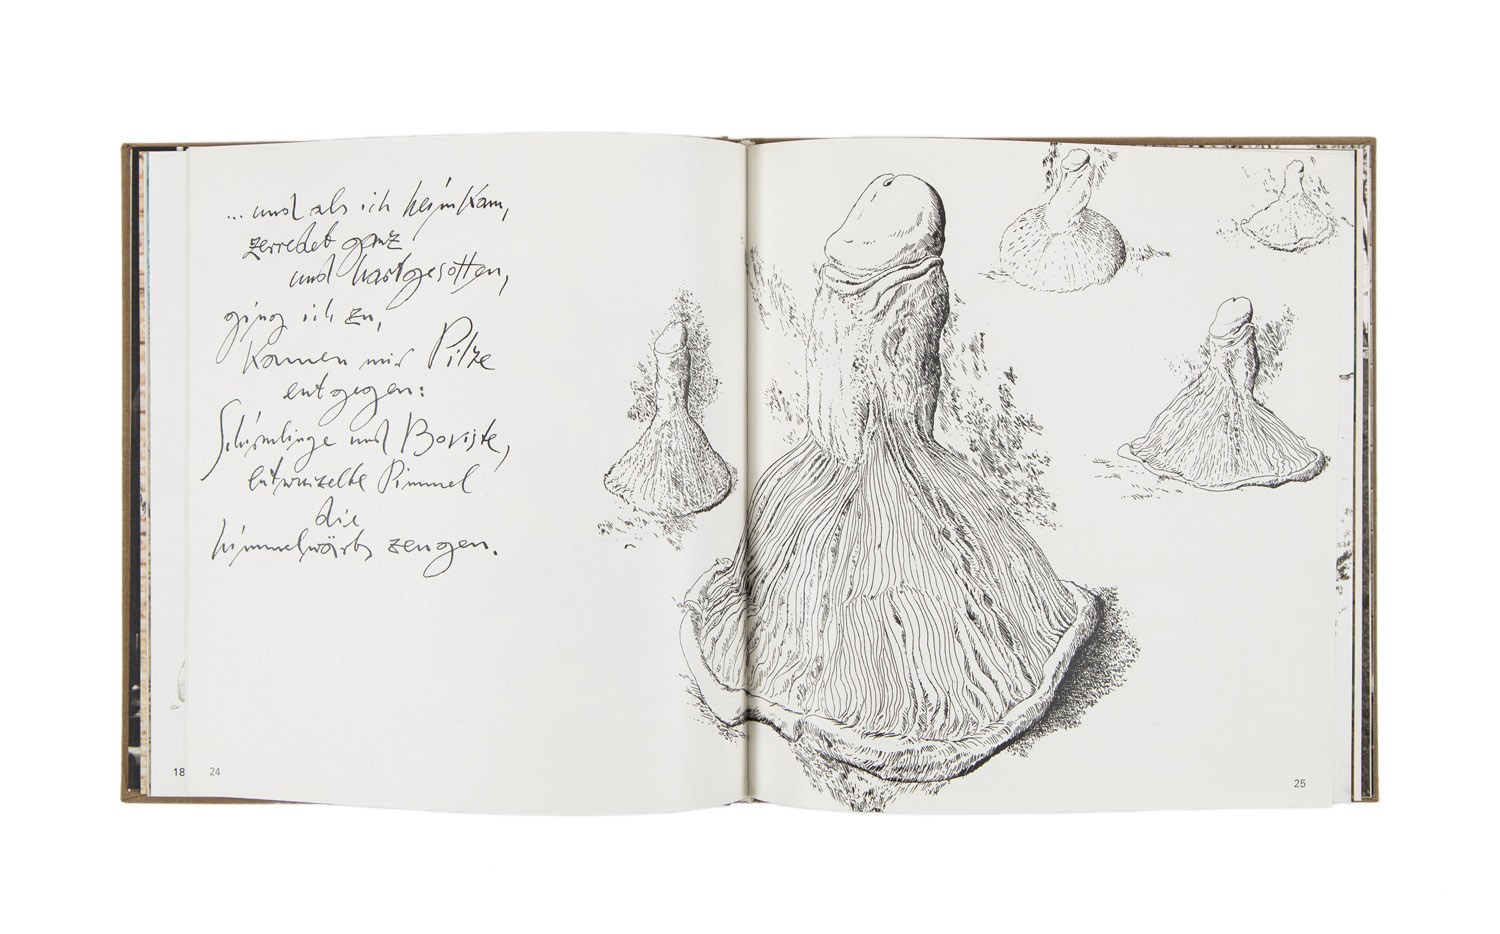 ... und als ich heimkam,
zerredet ganz
und hartgesotten,
ging ich zu,
kamen mir Pilze
entgegen:
Schirmlinge und Boviste,
entwurzelte Pimmel
die
himmelwärts zeugen.
18 24
25